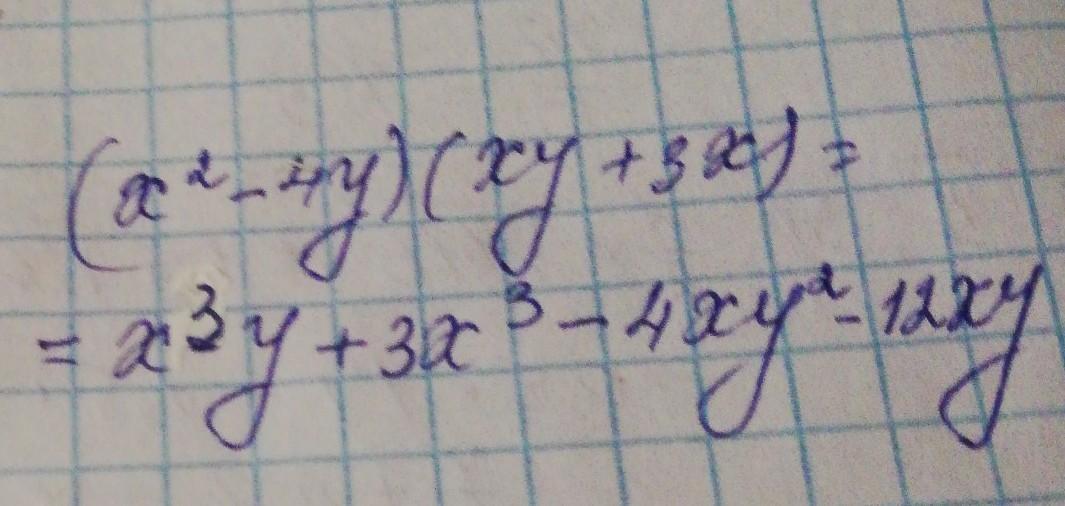 (x² - 4y)(xy + 3x) =
= x³y + 3x³ - 4xy² - 12xy